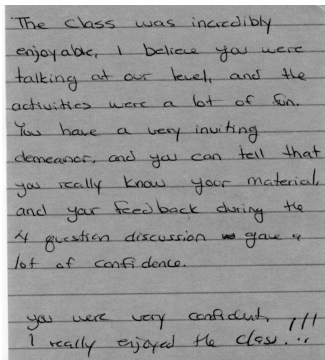 The class was incredibly
enjoyable, I believe you were
talking at our level, and the
activities were a lot of fun.
You have a very inviting
demeanor, and you can tell that
you really know your material,
and your feedback during the
4 question discussion gave a
lot of confidence.
you were very confident, !!!
I really enjoyed the class...